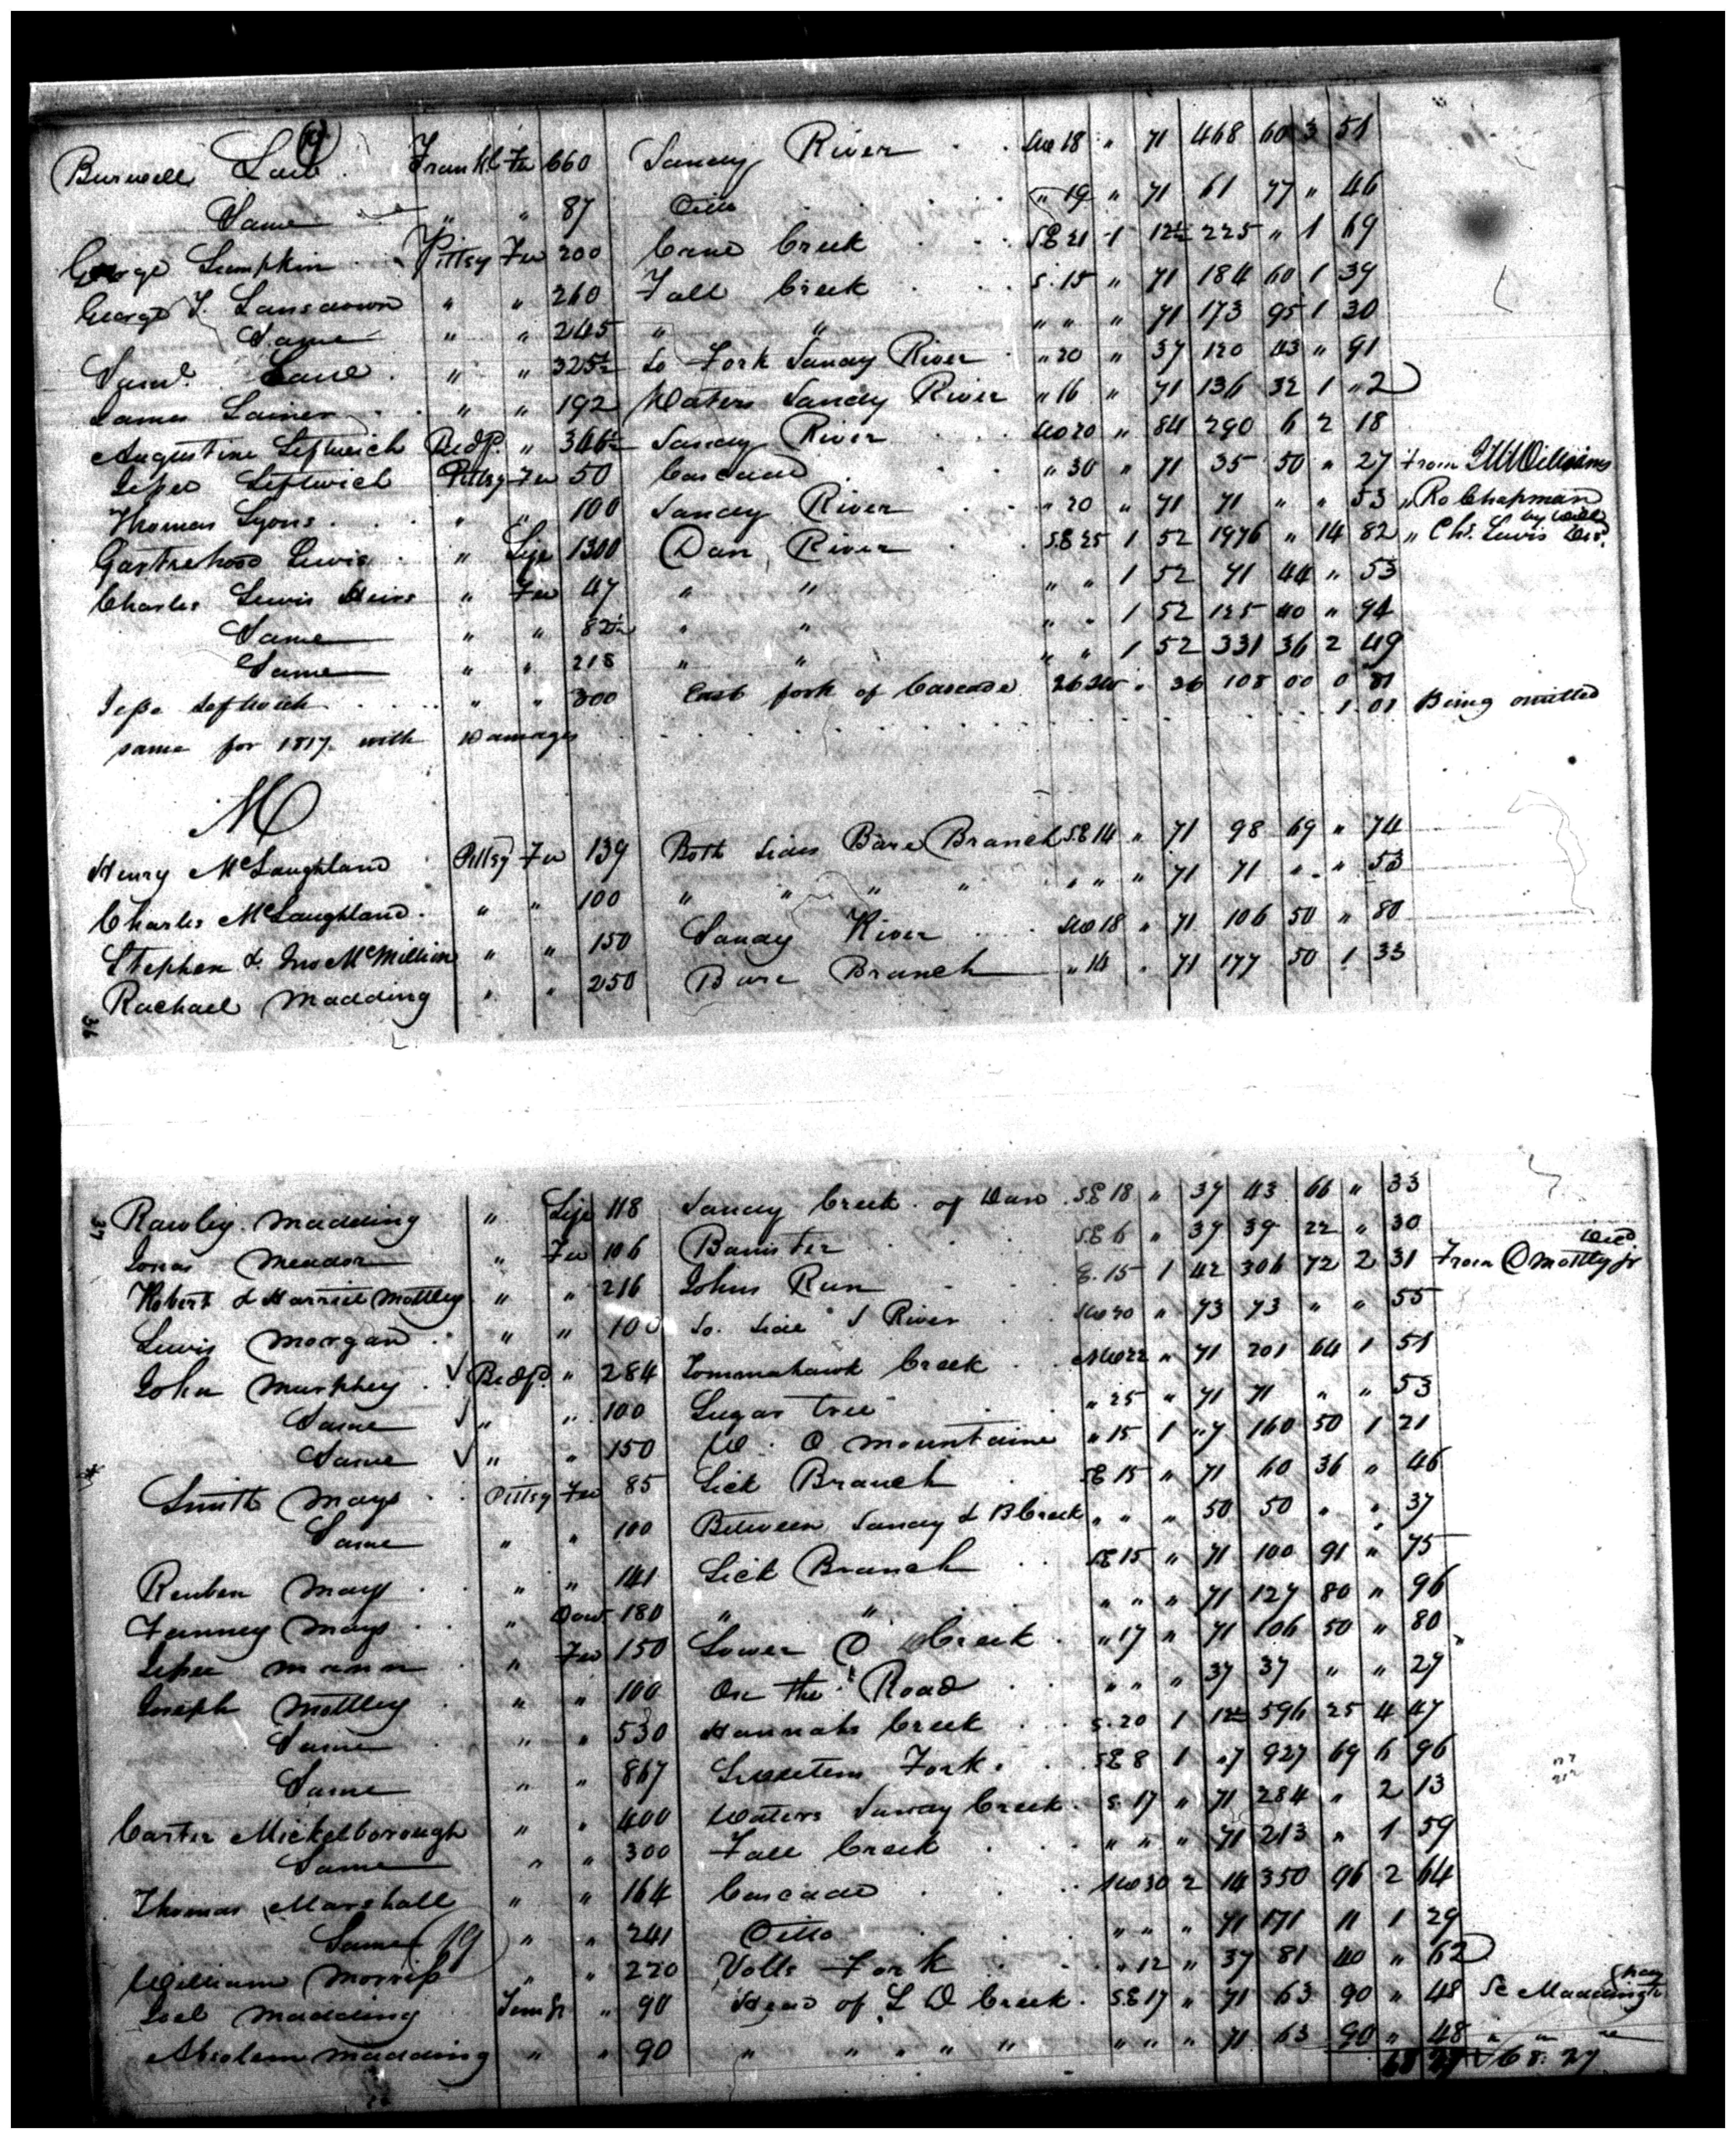 Burwell Law . Frankl. Fee 660 Sandy River . . SW 18 " 71 468 60 3 51
Same " " 87 Ditto " 19 " 71 61 77 " 46
George Lumpkin . Pittsy Fee 200 Cane Creek . . SE 21 1 12½ 225 " 1 69
George T. Lansdown " " 260 Fall Creek . . S. 15 " 71 184 60 1 39
Same " " 245 " " " " " 71 173 95 1 30
Saml. Lane . " " 325½ So Fork Sandy River " 20 " 37 120 43 " 91
James Lainer . . " " 192 Waters Sandy River " 16 " 71 136 32 1 " 2
Augustine Leftwich Bedfd. " 346½ Sandy River . . SW 20 " 84 290 6 2 18
Jesse Leftwich Pittsy Fee 50 Cascade . " 30 " 71 35 50 " 27 from Williams
Thomas Lyons . . " " 100 Sandy River . " 20 " 71 71 " " 53 " Ro Chapman
by will
Lewis . " Life 1300 Dan River . SE 25 1 52 1976 " 14 82 " Chs. Lewis
Charles Lewis Heirs " Fee 47 " " " " 1 52 71 44 " 53
Same " " 82½ " " " " 1 52 125 40 " 94
Same " " 218 " " " " 1 52 331 36 2 49
Jesse Leftwich . . . " " 300 East fork of Cascade 26 SW " 36 108 00 0 81
same for 1817 with Damages . . . 1.01 Being omitted
M
Henry McLaughland Pittsy Fee 139 Both sides Bare Branch SE 14 " 71 98 69 " 74
Charles McLaughland . " " 100 " " " " " " " 71 71 " " 53
Stephen & Jno McMillion " " 150 Sandy River . . SW 18 " 71 106 50 " 80
Rachael Madding " " 250 Bare Branch " 14 " 71 177 50 1 33
36
37
Rawley Madding " Life 118 Sandy Creek of Dan . SE 18 " 37 43 66 " 33
Jonas Meador " Fee 106 Banister . . SE 6 " 37 39 22 " 30
Robert & Harriet Mottley " " 216 Johns Run . . E. 15 1 42 306 72 2 31 From O Mottley jr
Lewis Morgan . " " 100 So. side S River . . SW 20 " 73 73 " " 55
John Murphey . Bedfd. " 284 Tommahawk Creek . . NW 22 " 71 201 64 1 51
Same " " 100 Sugar tree " 25 " 71 71 " " 53
Same " " 150 W. O mountaine " 15 1 "7 160 50 1 21
Smith Mays . . Pittsy Fee 85 Lick Branch . SE 15 " 71 60 36 " 46
Same " " 100 Between Sandy & B Creek " " " 50 50 " " 37
Reuben Mays . . " " 141 Lick Branch . . SE 15 " 71 100 91 " 75
Fanney Mays . . " Dow 180 " " " " " 71 127 80 " 96
Jesse Mann . " Fee 150 Lower Creek . " 17 " 71 106 50 " 80
Joseph Mottley . " " 100 On the Road . . " " " 37 37 " " 27
Same " " 530 Hannahs Creek . . S. 20 1 12½ 596 25 4 47
Same " " 867 Fork . . SE 8 1 "7 927 69 6 96
Carter Mickelborough " " 400 Waters Sandy Creek . S 17 " 71 284 " 2 13
Same " " 300 Fall Creek . . " " " 71 213 " 1 59
Thomas Marshall " " 164 Cascade . . . SW 30 2 14 350 96 2 64
Same " " 241 Ditto . . " " " 71 171 11 1 29
William Morriss " " 220 Volls Fork . . " 12 " 37 81 40 " 62
Joel Madding " 90 Head of Creek . SE 17 " 71 63 90 " 48
Absolem Madding " " 90 " " " " " " " " 71 63 90 " 48 " " "
68 27 68. 27